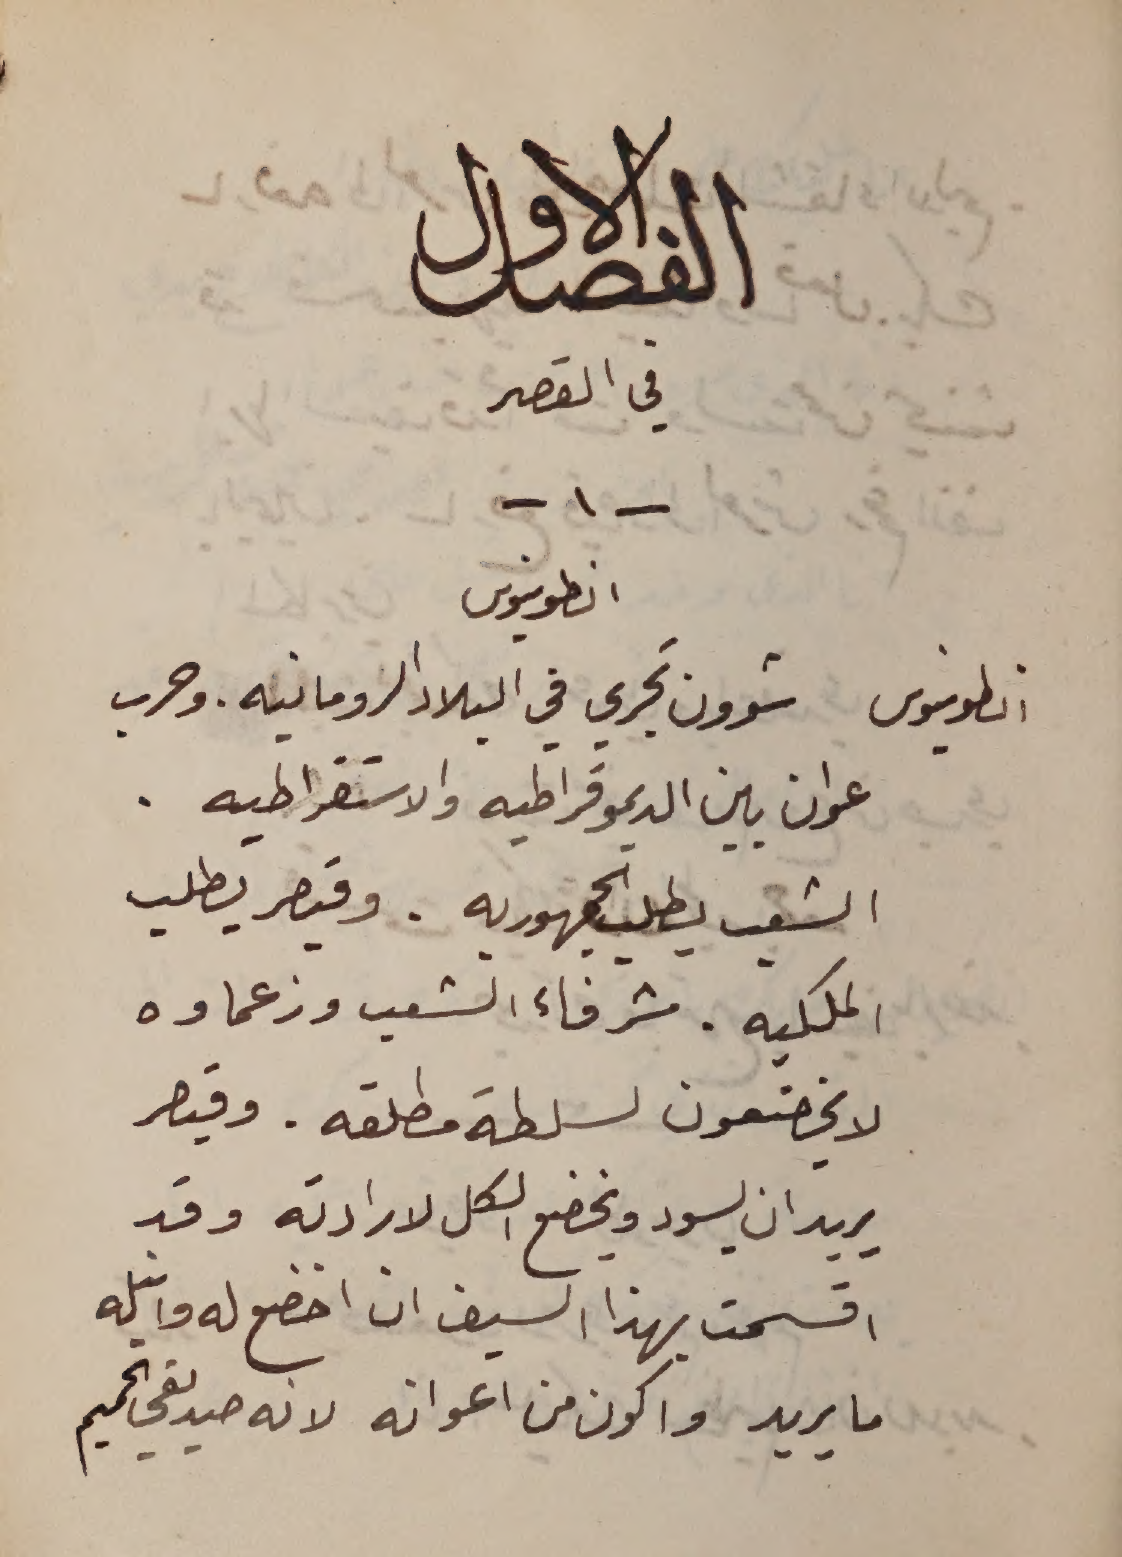 الفصل الاول
في القصر
- ١ -
انطونيوس
انطونيوس شوون تجري في البلاد الرومانيه . وحرب
عوان بين الديموقراطيه والاستقراطيه .
الشعب يطلب الجمهوريه . وقيصر يطلب
الملكيه . شرفاء الشعب وزعماوه
لا يخضعون لسلطة مطلقه . وقيصر
يريد ان يسود ويخضع الكل لارادته وقد
اقسمت بهذا السيف ان اخضع له وانيله
ما يريد واكون من اعوانه لانه صديقي الحميم